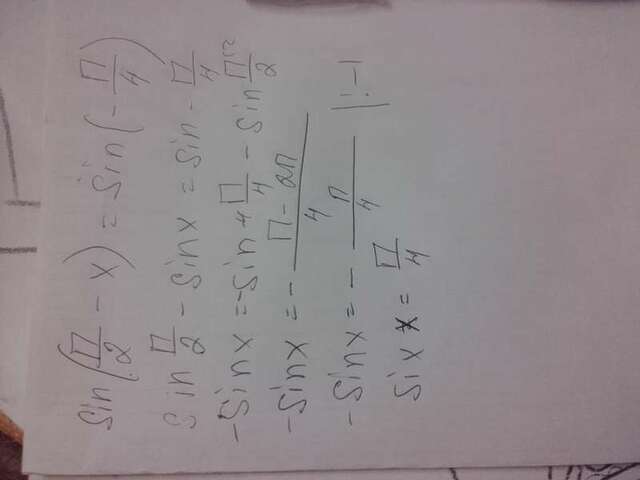 sin(П/2 - x) = sin(-П/4)
sin П/2 - sin x = sin - П/4
-sin x = -sin + П/4 - sin П^(2/2
-sin x = - П - 2П/4
-sin x = - П/4 |:-1
six x = П/4